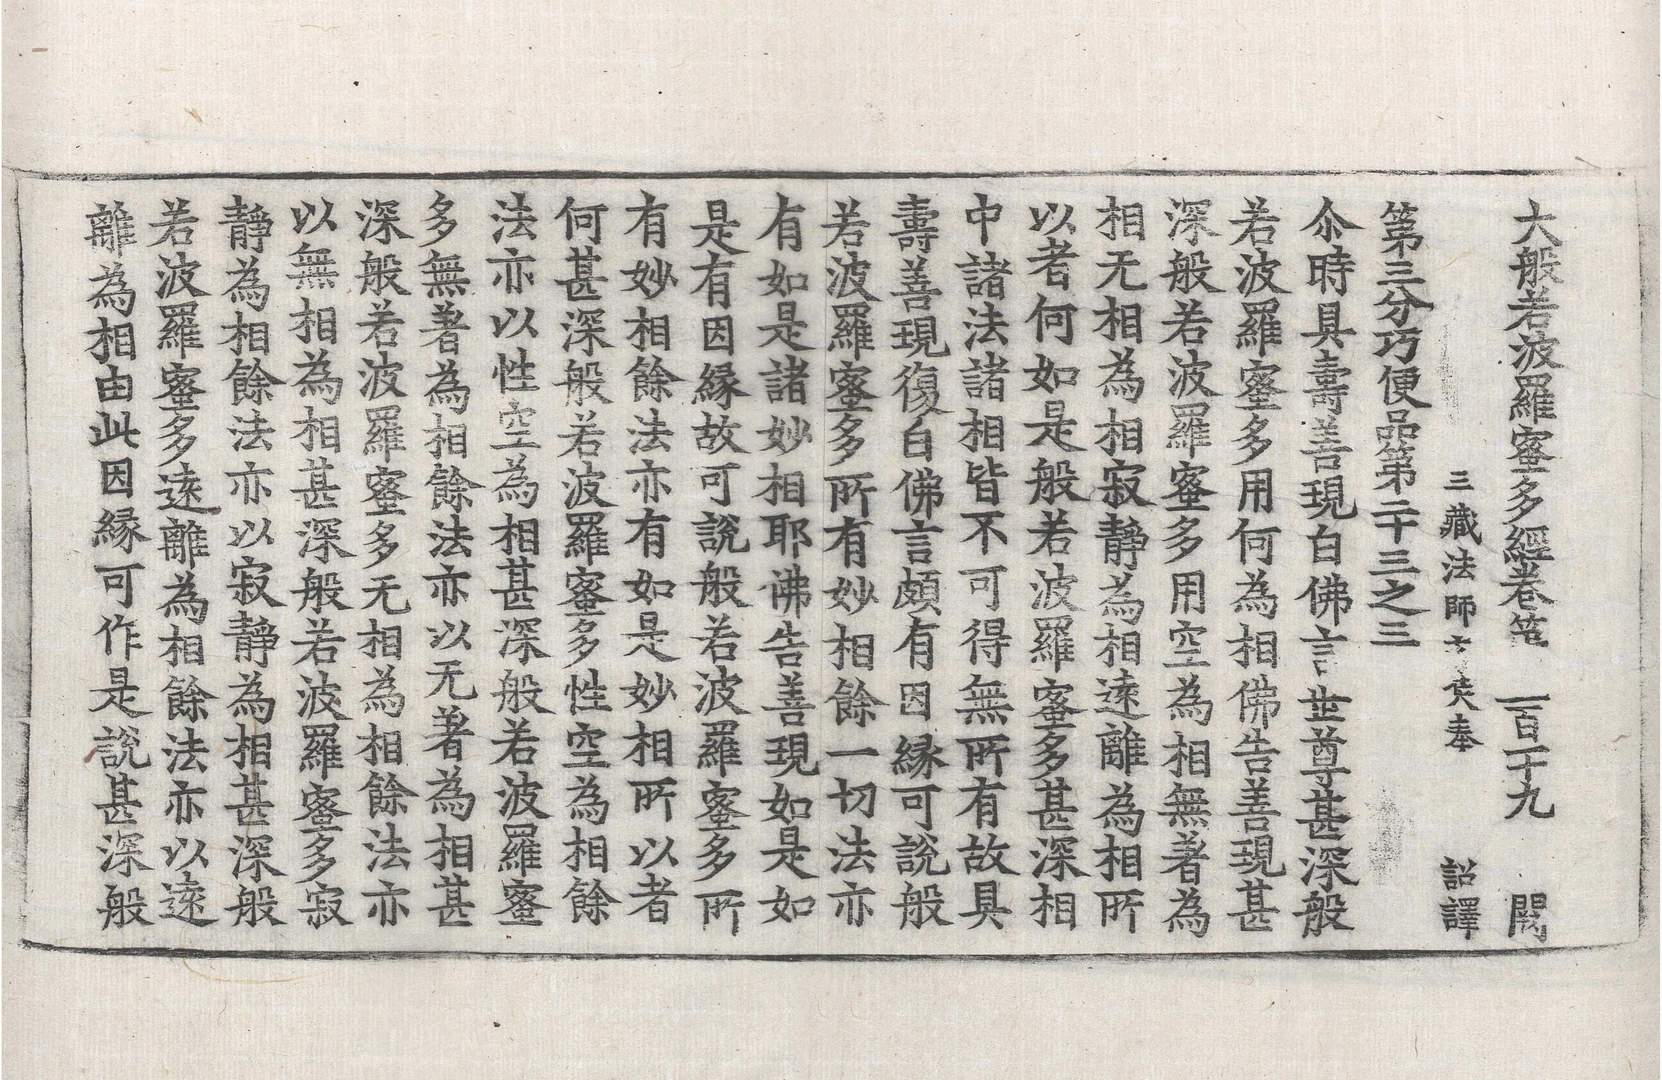 大般若波羅蜜多經卷第五百二十九
三藏法師玄奘奉詔譯
第三分巧便品第二十三之三
尒時具壽善現白佛言世尊甚深般
若波羅蜜多用何為相佛告善現甚
深般若波羅蜜多用空為相無著為
相无相為相寂靜為相遠離為相所
以者何如是般若波羅蜜多甚深相
中諸法諸相皆不可得無所有故具
壽善現復白佛言頗有因緣可說般
若波羅蜜多所有妙相餘一切法亦
有如是諸妙相耶佛告善現如是如
是有因緣故可說般若波羅蜜多所
有妙相餘法亦有如是妙相所以者
何甚深般若波羅蜜多性空為相餘
法亦以性空為相甚深般若波羅蜜
多無著為相餘法亦以无著為相甚
深般若波羅蜜多无相為相餘法亦
以無相為相甚深般若波羅蜜多寂
靜為相餘法亦以寂靜為相甚深般
若波羅蜜多遠離為相餘法亦以遠
離為相由此因緣可作是說甚深般